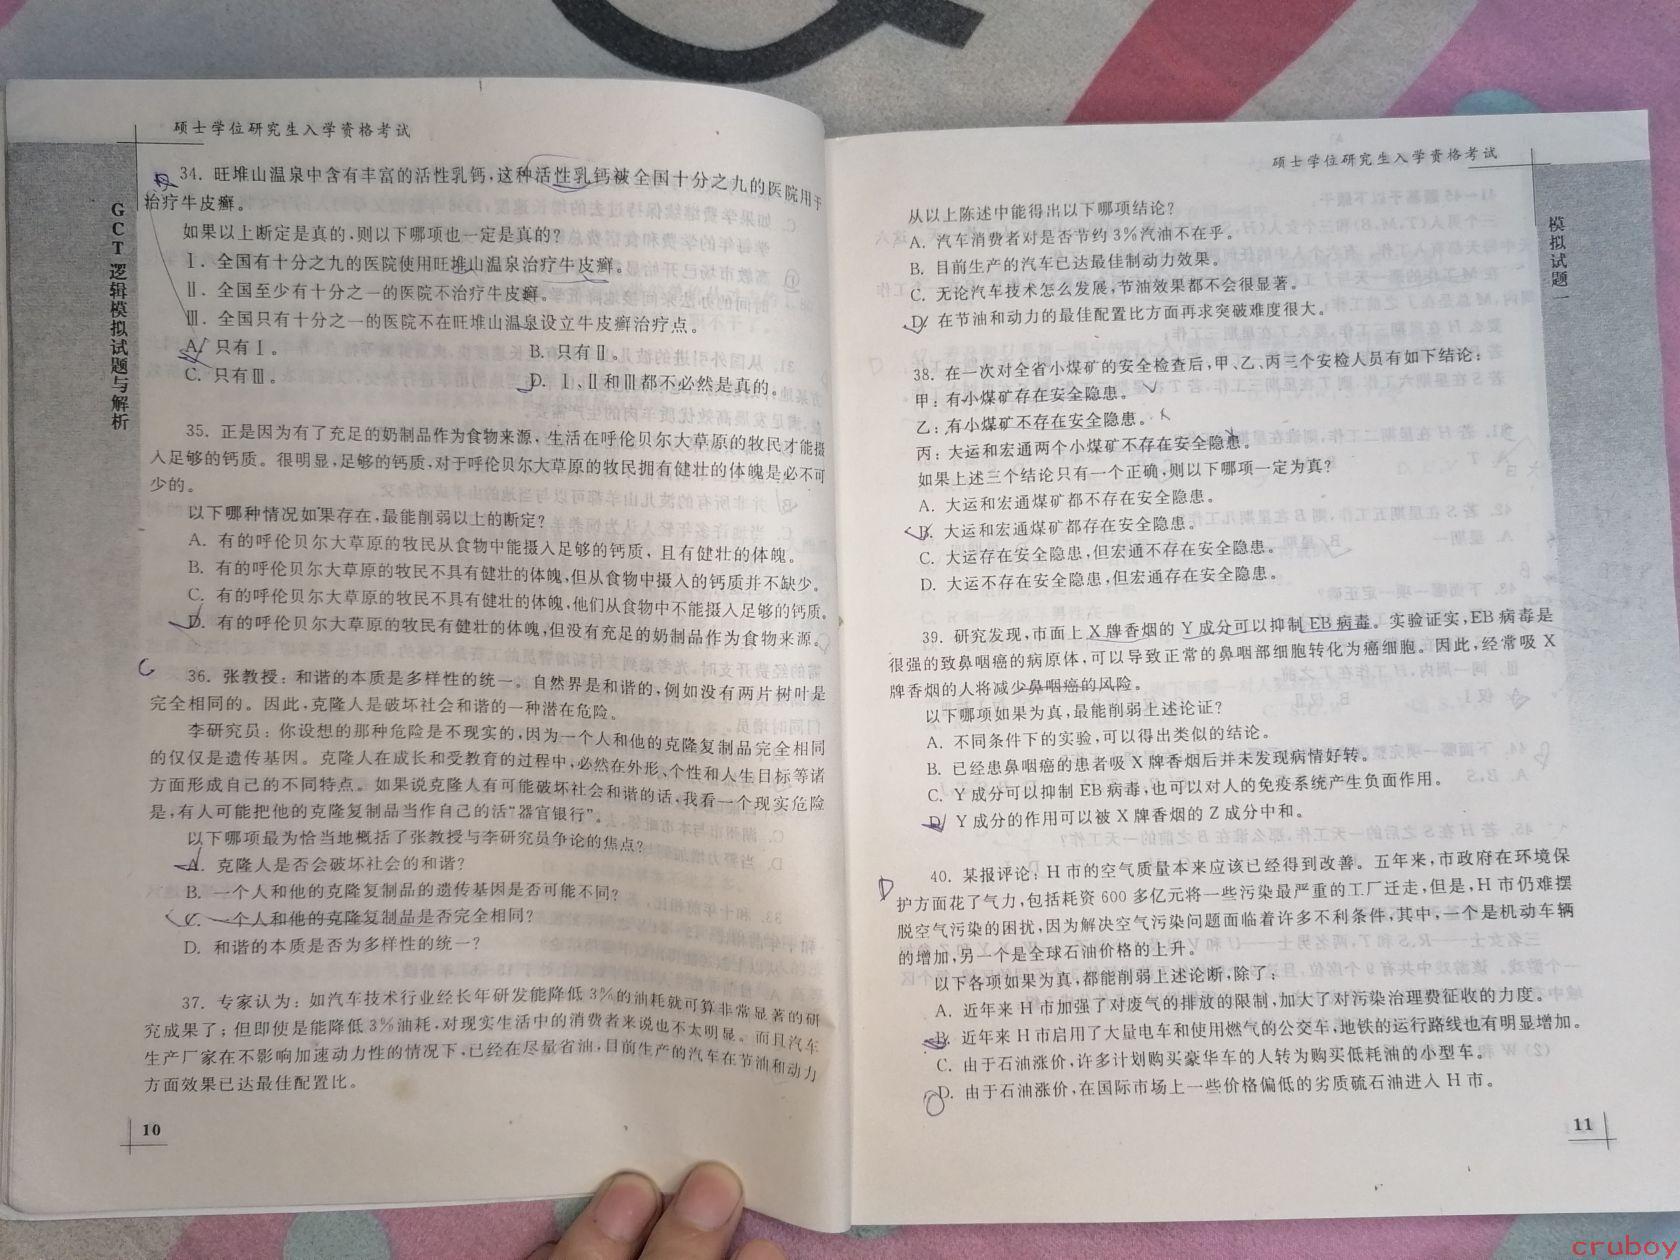 硕士学位研究生入学资格考试
GCT逻辑模拟试题与解析
34. 旺堆山温泉中含有丰富的活性乳钙,这种活性乳钙被全国十分之九的医院用于
治疗牛皮癣。
如果以上断定是真的,则以下哪项也一定是真的?
Ⅰ. 全国有十分之九的医院使用旺堆山温泉治疗牛皮癣。
Ⅱ. 全国至少有十分之一的医院不治疗牛皮癣。
Ⅲ. 全国只有十分之一的医院不在旺堆山温泉设立牛皮癣治疗点。
A. 只有Ⅰ。 B. 只有Ⅱ。
C. 只有Ⅲ。 D. Ⅰ、Ⅱ和Ⅲ都不必然是真的。
35. 正是因为有了充足的奶制品作为食物来源,生活在呼伦贝尔大草原的牧民才能摄
入足够的钙质。很明显,足够的钙质,对于呼伦贝尔大草原的牧民拥有健壮的体魄是必不可
少的。
以下哪种情况如果存在,最能削弱以上的断定?
A. 有的呼伦贝尔大草原的牧民从食物中能摄入足够的钙质,且有健壮的体魄。
B. 有的呼伦贝尔大草原的牧民不具有健壮的体魄,但从食物中摄入的钙质并不缺少。
C. 有的呼伦贝尔大草原的牧民不具有健壮的体魄,他们从食物中不能摄入足够的钙质。
D. 有的呼伦贝尔大草原的牧民有健壮的体魄,但没有充足的奶制品作为食物来源。
C
36. 张教授: 和谐的本质是多样性的统一。自然界是和谐的,例如没有两片树叶是
完全相同的。因此,克隆人是破坏社会和谐的一种潜在危险。
李研究员: 你设想的那种危险是不现实的,因为一个人和他的克隆复制品完全相同
的仅仅是遗传基因。克隆人在成长和受教育的过程中,必然在外形、个性和人生目标等诸
方面形成自己的不同特点。如果说克隆人有可能破坏社会和谐的话,我看一个现实危险
是,有人可能把他的克隆复制品当作自己的活“器官银行”。
以下哪项最为恰当地概括了张教授与李研究员争论的焦点?
A. 克隆人是否会破坏社会的和谐?
B. 一个人和他的克隆复制品的遗传基因是否可能不同?
C. 一个人和他的克隆复制品是否完全相同?
D. 和谐的本质是否为多样性的统一?
37. 专家认为: 如汽车技术行业经长年研发能降低3%的油耗就可算非常显著的研
究成果了; 但即使是能降低3%油耗,对现实生活中的消费者来说也不太明显。而且汽车
生产厂家在不影响加速动力性的情况下,已经在尽量省油,目前生产的汽车在节油和动力
方面效果已达最佳配置比。
10
硕士学位研究生入学资格考试
模拟试题一
从以上陈述中能得出以下哪项结论?
A. 汽车消费者对是否节约3%汽油不在乎。
B. 目前生产的汽车已达最佳制动力效果。
C. 无论汽车技术怎么发展,节油效果都不会很显著。
D. 在节油和动力的最佳配置比方面再求突破难度很大。
38. 在一次对全省小煤矿的安全检查后,甲、乙、丙三个安检人员有如下结论:
甲: 有小煤矿存在安全隐患。
乙: 有小煤矿不存在安全隐患。
丙: 大运和宏通两个小煤矿不存在安全隐患。
如果上述三个结论只有一个正确,则以下哪项一定为真?
A. 大运和宏通煤矿都不存在安全隐患。
B. 大运和宏通煤矿都存在安全隐患。
C. 大运存在安全隐患,但宏通不存在安全隐患。
D. 大运不存在安全隐患,但宏通存在安全隐患。
39. 研究发现,市面上X牌香烟的Y成分可以抑制EB病毒。实验证实,EB病毒是
很强的致鼻咽癌的病原体,可以导致正常的鼻咽部细胞转化为癌细胞。因此,经常吸X
牌香烟的人将减少鼻咽癌的风险。
以下哪项如果为真,最能削弱上述论证?
A. 不同条件下的实验,可以得出类似的结论。
B. 已经患鼻咽癌的患者吸X牌香烟后并未发现病情好转。
C. Y成分可以抑制EB病毒,也可以对人的免疫系统产生负面作用。
D. Y成分的作用可以被X牌香烟的Z成分中和。
D
40. 某报评论: H市的空气质量本来应该已经得到改善。五年来,市政府在环境保
护方面花了气力,包括耗资600多亿元将一些污染最严重的工厂迁走,但是,H市仍难摆
脱空气污染的困扰,因为解决空气污染问题面临着许多不利条件,其中,一个是机动车辆
的增加,另一个是全球石油价格的上升。
以下各项如果为真,都能削弱上述论断,除了:
A. 近年来H市加强了对废气的排放的限制,加大了对污染治理费征收的力度。
B. 近年来H市启用了大量电车和使用燃气的公交车,地铁的运行路线也有明显增加。
C. 由于石油涨价,许多计划购买豪华车的人转为购买低耗油的小型车。
D. 由于石油涨价,在国际市场上一些价格偏低的劣质硫石油进入H市。
11
cruboy